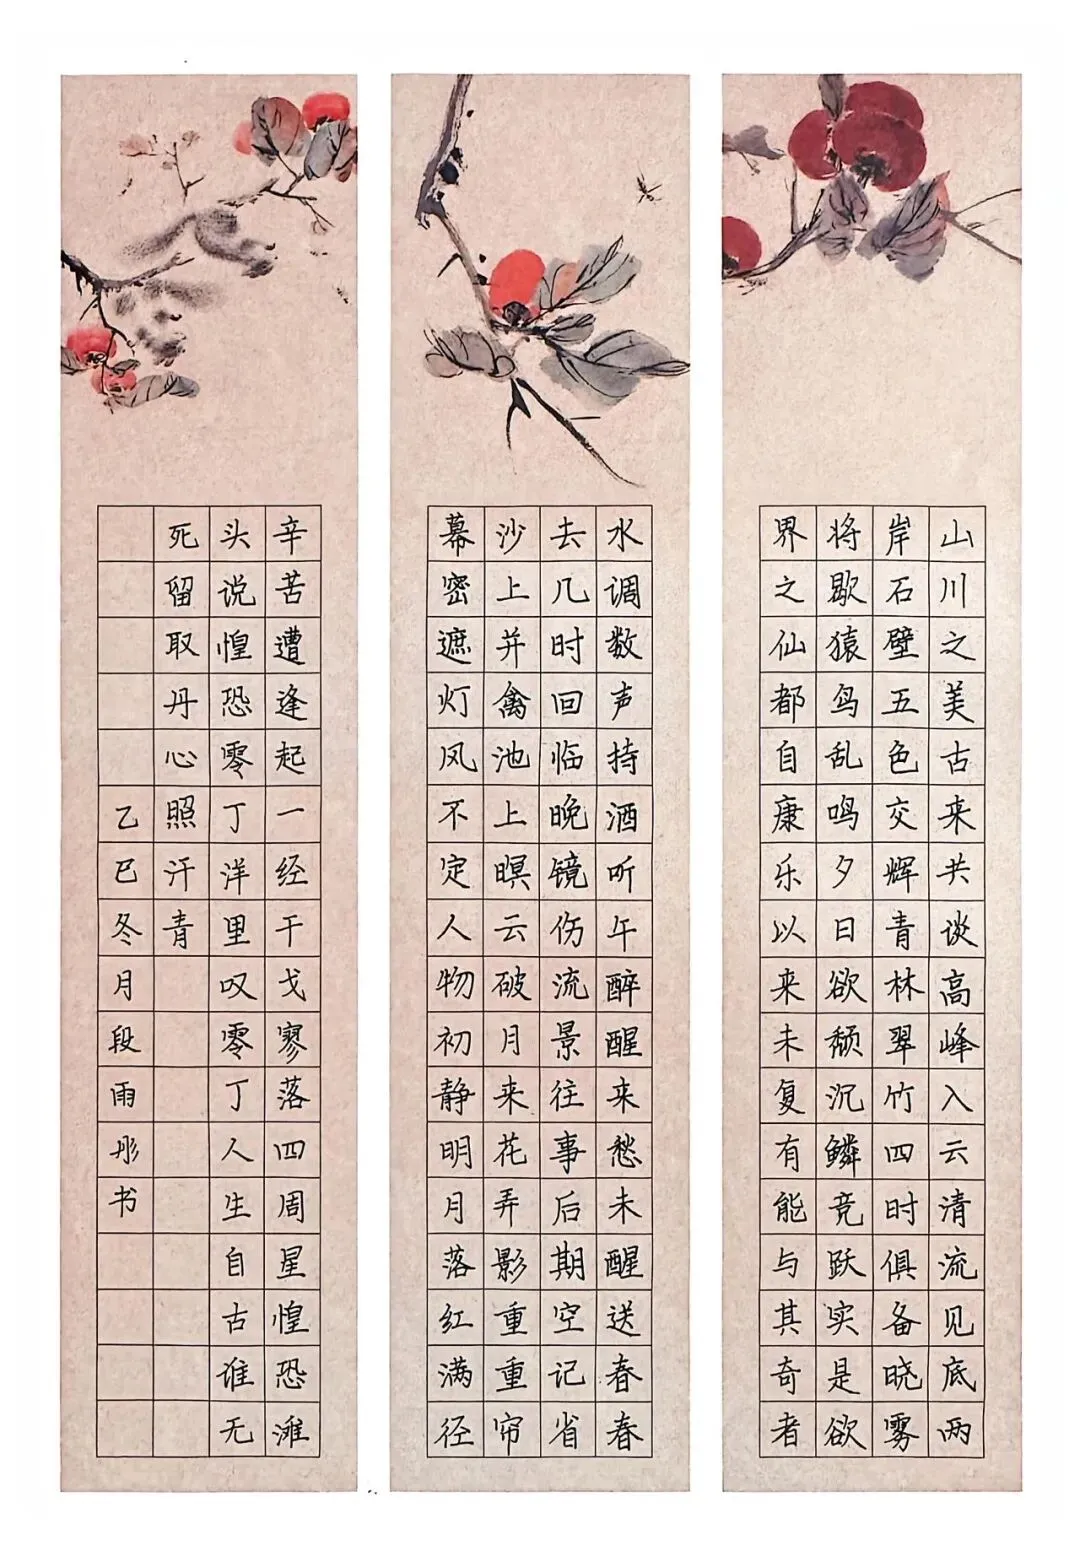 山川之美古来共谈高峰入云清流见底两
岸石壁五色交辉青林翠竹四时俱备晓雾
将歇猿鸟乱鸣夕日欲颓沉鳞竞跃实是欲
界之仙都自康乐以来未复有能与其奇者
水调数声持酒听午醉醒来愁未醒送春春
去几时回临晚镜伤流景往事后期空记省
沙上并禽池上暝云破月来花弄影重重帘
幕密遮灯风不定人物初静明月落红满径
辛苦遭逢起一经干戈寥落四周星惶恐滩
头说惶恐零丁洋里叹零丁人生自古谁无
死留取丹心照汗青
乙巳冬月段雨彤书